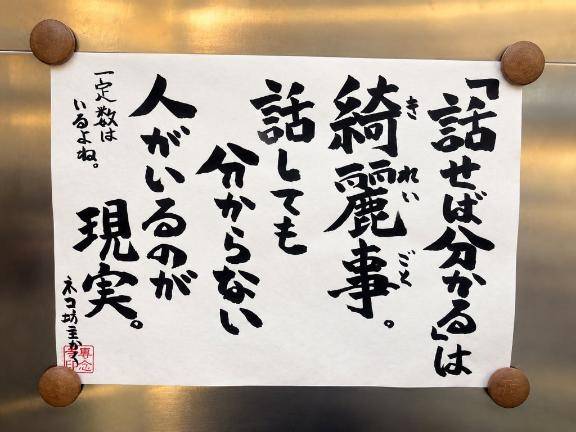 「話せば分かる」は
綺麗事。
きれいごと
話しても
分からない
人がいるのが
現実。
一定数は
いるよね。
ネコ坊主かく
専念
寺印